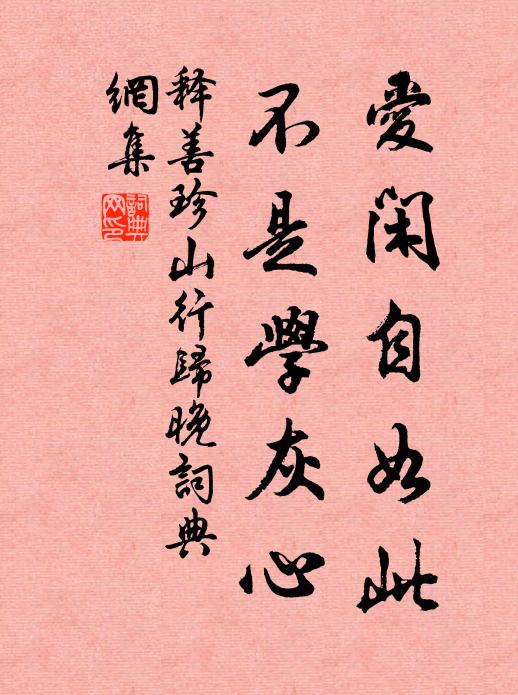 愛閑自如此
不是學灰心
释善珍山行歸晚詞典
網集
詞典
网印